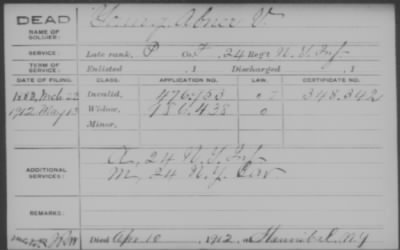 DEAD
NAME OF SOLDIER: Young, Abner V.
SERVICE: Late rank, P Co. F, 24 Reg't N.Y. Inf.
TERM OF SERVICE: Enlisted , 1 Discharged , 1
DATE OF FILING. CLASS. APPLICATION NO. LAW. CERTIFICATE NO.
1883, Mch 22 Invalid, 476.453 348.342
1912 May 13 Widow, 986.438
Minor,
ADDITIONAL SERVICES: A, 24 N.Y. Inf
M, 24 N.Y. Cav
REMARKS:
Died Apr 10, 1912, at Hannibal, N.Y